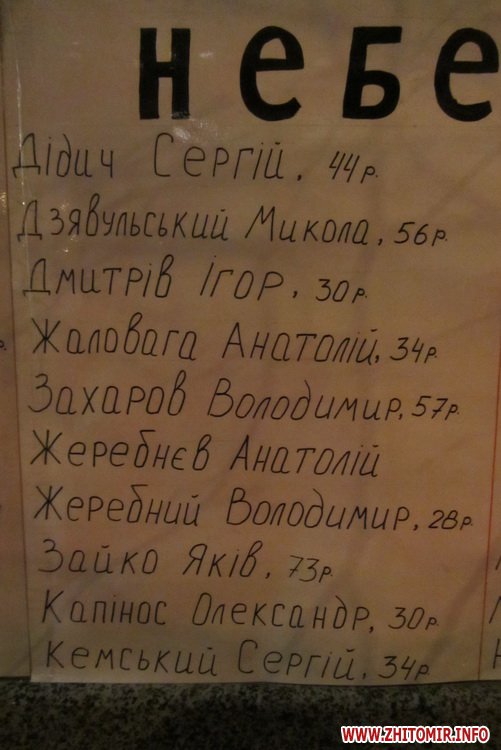 небе
Дідич Сергій, 44р.
Дзявульський Микола, 56р.
Дмитрів Ігор, 30р.
Жаловага Анатолій, 34р.
Захаров Володимир, 57р.
Жеребнєв Анатолій
Жеребний Володимир, 28р.
Зайко Яків, 73р.
Капінос Олександр, 30р.
Кемський Сергій, 34р.
WWW.ZHITOMIR.INFO